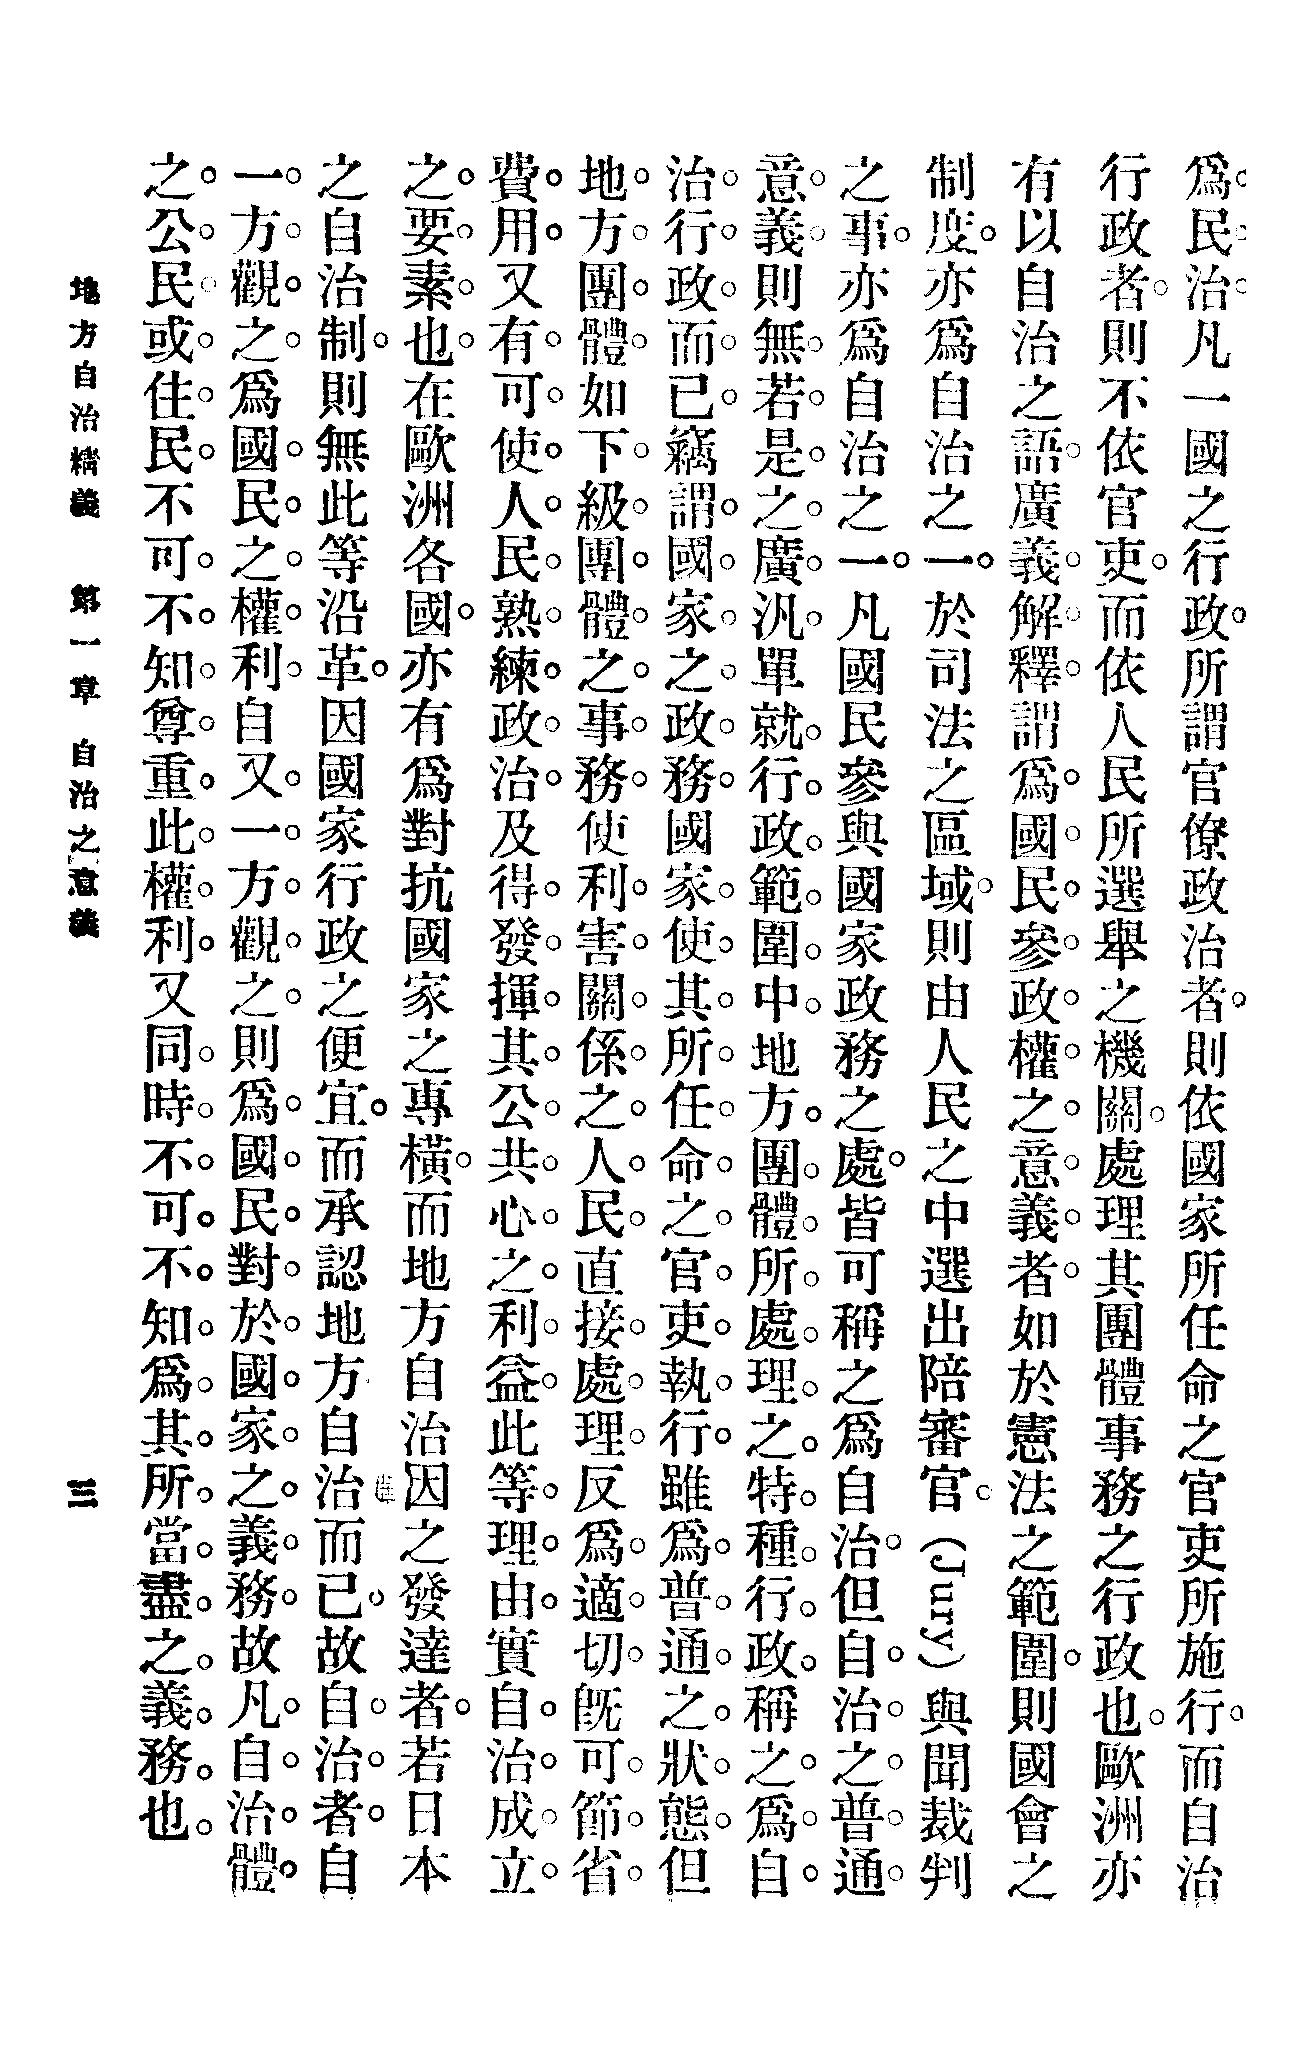 爲。民。治。凡一國之行政。所謂官僚政治者。則依國家所任命之官吏所施行。而自治
行政者。則不依官吏。而依人民所選舉之機關。處理其團體事務之行政也。歐洲亦
有以自治之語。廣義。解。釋。謂爲。國。民。參。政。權。之。意。義。者。如於憲法之範圍。則國會之
制度。亦爲自治之一。於司法之區域。則由人民之中選出陪審官。(Jury)與聞裁判
之事。亦爲自治之一。凡國民參與國家政務之處。皆可稱之爲自治。但自。治。之。普。通。
意。義。則無。若。是。之。廣。汎。單就。行。政。範。圍。中。地方。團。體。所。處。理。之。特。種。行。政。稱之。爲。自。
治。行。政。而。已。竊謂。國。家。之。政。務。國家。使。其。所。任。命。之。官。吏。執。行。雖爲。普。通。之。狀。態。但
地。方。團。體。如下。級。團。體。之。事。務。使利。害。關。係。之。人。民。直接。處。理。反爲。適。切。既可。節。省。
費。用。又有。可。使。人。民。熟。練。政。治。及得。發。揮。其。公。共。心。之。利。益。此等。理。由。實自。治。成。立。
之。要。素。也。在歐洲各國。亦有爲對抗國家之專橫。而地方自治因之發達者。若日本
之自治制。則無此等沿革。因國家行政之便宜。而承認地方自治而已。故自。治。者。自
一。方。觀。之。爲國。民。之。權。利。自又。一。方。觀。之。則爲。國。民。對。於。國。家。之。義。務。故凡。自。治。體。
之。公。民。或。住。民。不可。不。知。尊。重。此。權。利。又同。時。不。可。不。知。爲。其。所。當。盡。之。義。務。也。
地方自治精義 第一章 自治之意義 三